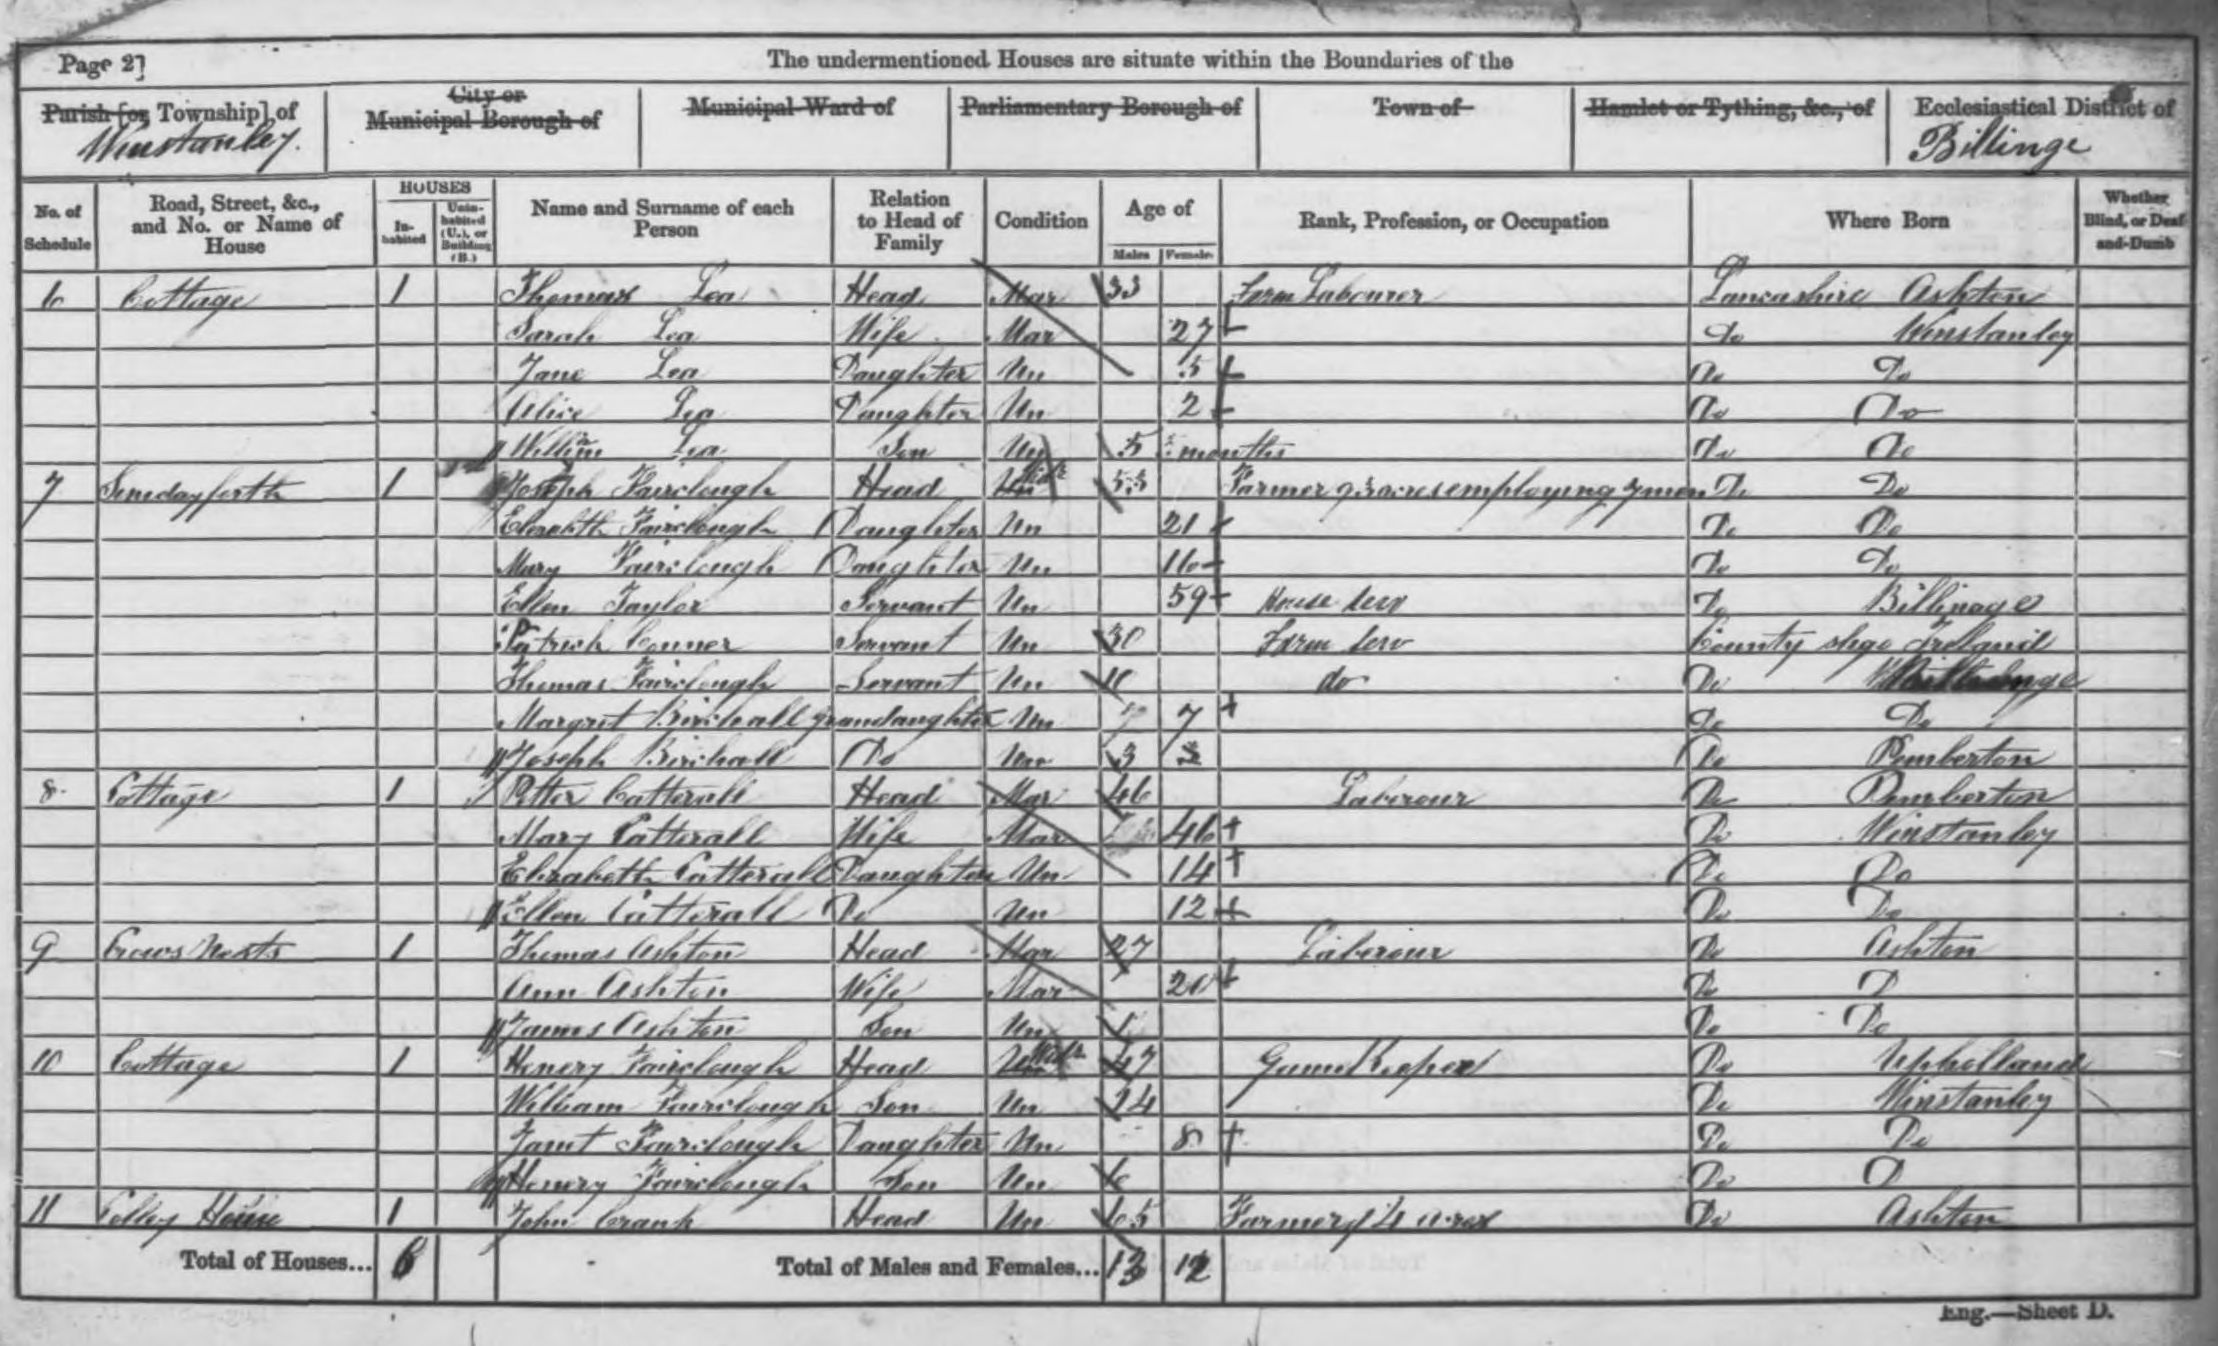 Page 2]
The undermentioned Houses are situate within the Boundaries of the
Parish [or Township] of
Winstanley.
City or
Municipal Borough of
Municipal Ward of
Parliamentary Borough of
Town of
Hamlet or Tything, &c., of
Ecclesiastical District of
Billinge
No. of Schedule
Road, Street, &c., and No. or Name of House
HOUSES
In-habited
Unin-habited (U.), or Building (B.)
Name and Surname of each Person
Relation to Head of Family
Condition
Age of
Males Females
Rank, Profession, or Occupation
Where Born
Whether Blind, or Deaf-and-Dumb
6 Cottage 1 Thomas Lea Head Mar 33 Farm Labourer Lancashire Ashton
Sarah Lea Wife Mar 27 do Winstanley
Jane Lea Daughter Un 5 Do Do
Alice Lea Daughter Un 2 Do Do
Willim Lea Son Un 5 months Do Do
7 1 Joseph Fairclough Head Un Widr 55 Farmer acres employing 7 men Do Do
Elezabeth Fairclough Daughter Un 21 Do Do
Mary Fairclough Daughter Un 16 Do Do
Ellen Taylor Servant Un 59 House Serv Do Billinage
Patrick Conner Servant Un 30 Farm Serv County sligo Ireland
Thomas Fairclough Servant Un do Do
Margret Birchall grandaughter Un 7 Do Do
Joseph Birchall Do Un 3 Do Pemberton
8 Cottage 1 Petter Catterall Head Mar 46 Laberour Do Pemberton
Mary Catterall Wife Mar 46 Do Winstanley
Elezabeth Catterall Daughter Un 14 Do Do
Ellen Catterall Do Un 12 Do Do
9 Crows Nests 1 Thomas Ashton Head Mar 27 Laberour Do Ashton
Ann Ashton Wife Mar Do D
James Ashton Son Un 1 Do Do
10 Cottage 1 Henery Fairclough Head Un Widr 47 Game Keeper Do Upholland
William Fairclough Son Un 14 Do Winstanley
Janet Fairclough Daughter Un 8 Do Do
Henery Fairclough Son Un 6 Do D
11 House 1 John Crank Head Un 65 Farmer of 4 acres Do Ashton
Total of Houses... 6
Total of Males and Females... 13 12
Eng.—Sheet D.